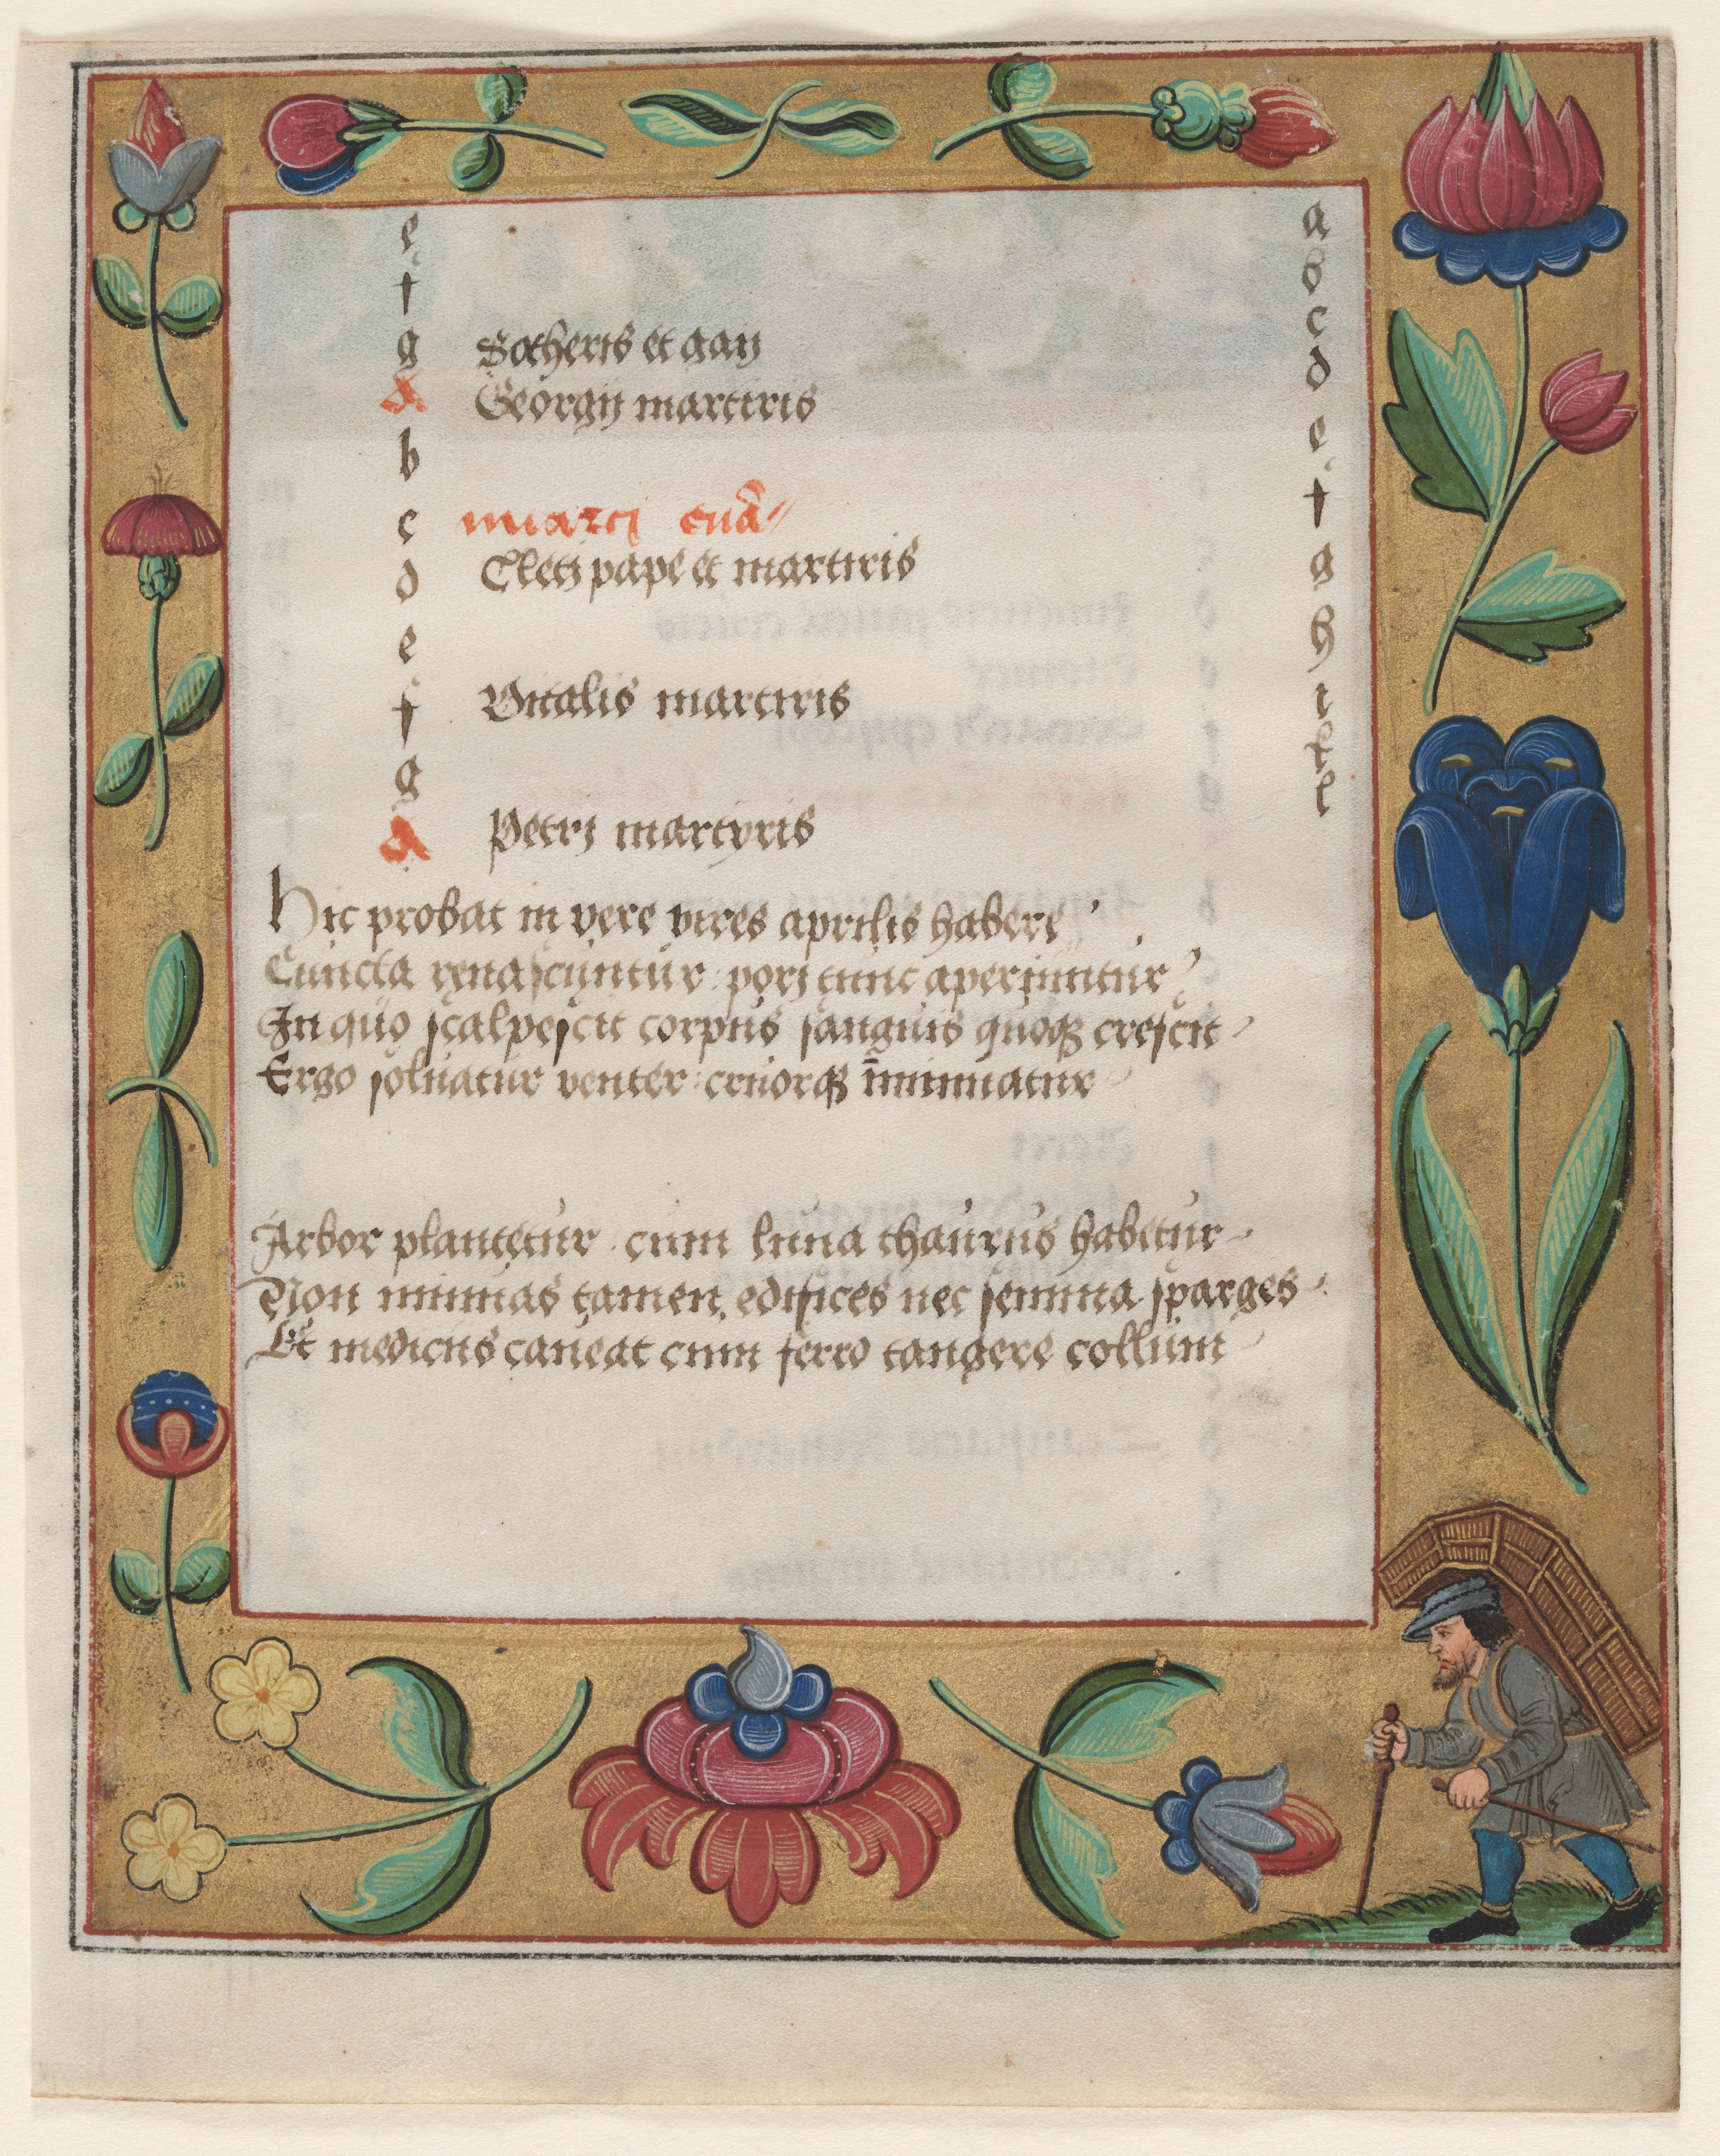 e a
f b
g Sotheris et gaij c
A Georgij martiris d
b e
c marci eua f
d Cleti pape et martiris g
e h
f Vitalis martiris i
g k
A Petri martyris l
Hic probat in vere vires aprilis habere
Cuncta renascuntur pori tunc aperiuntur
In quo scalpescit corpus sanguis quoqȝ crescit
Ergo soluatur venter cruorqȝ minuatur
Arbor plantetur cum luna thaurus habetur
Non minuas tamen edifices nec semina sparges
Et medicus caueat cum ferro tangere collum